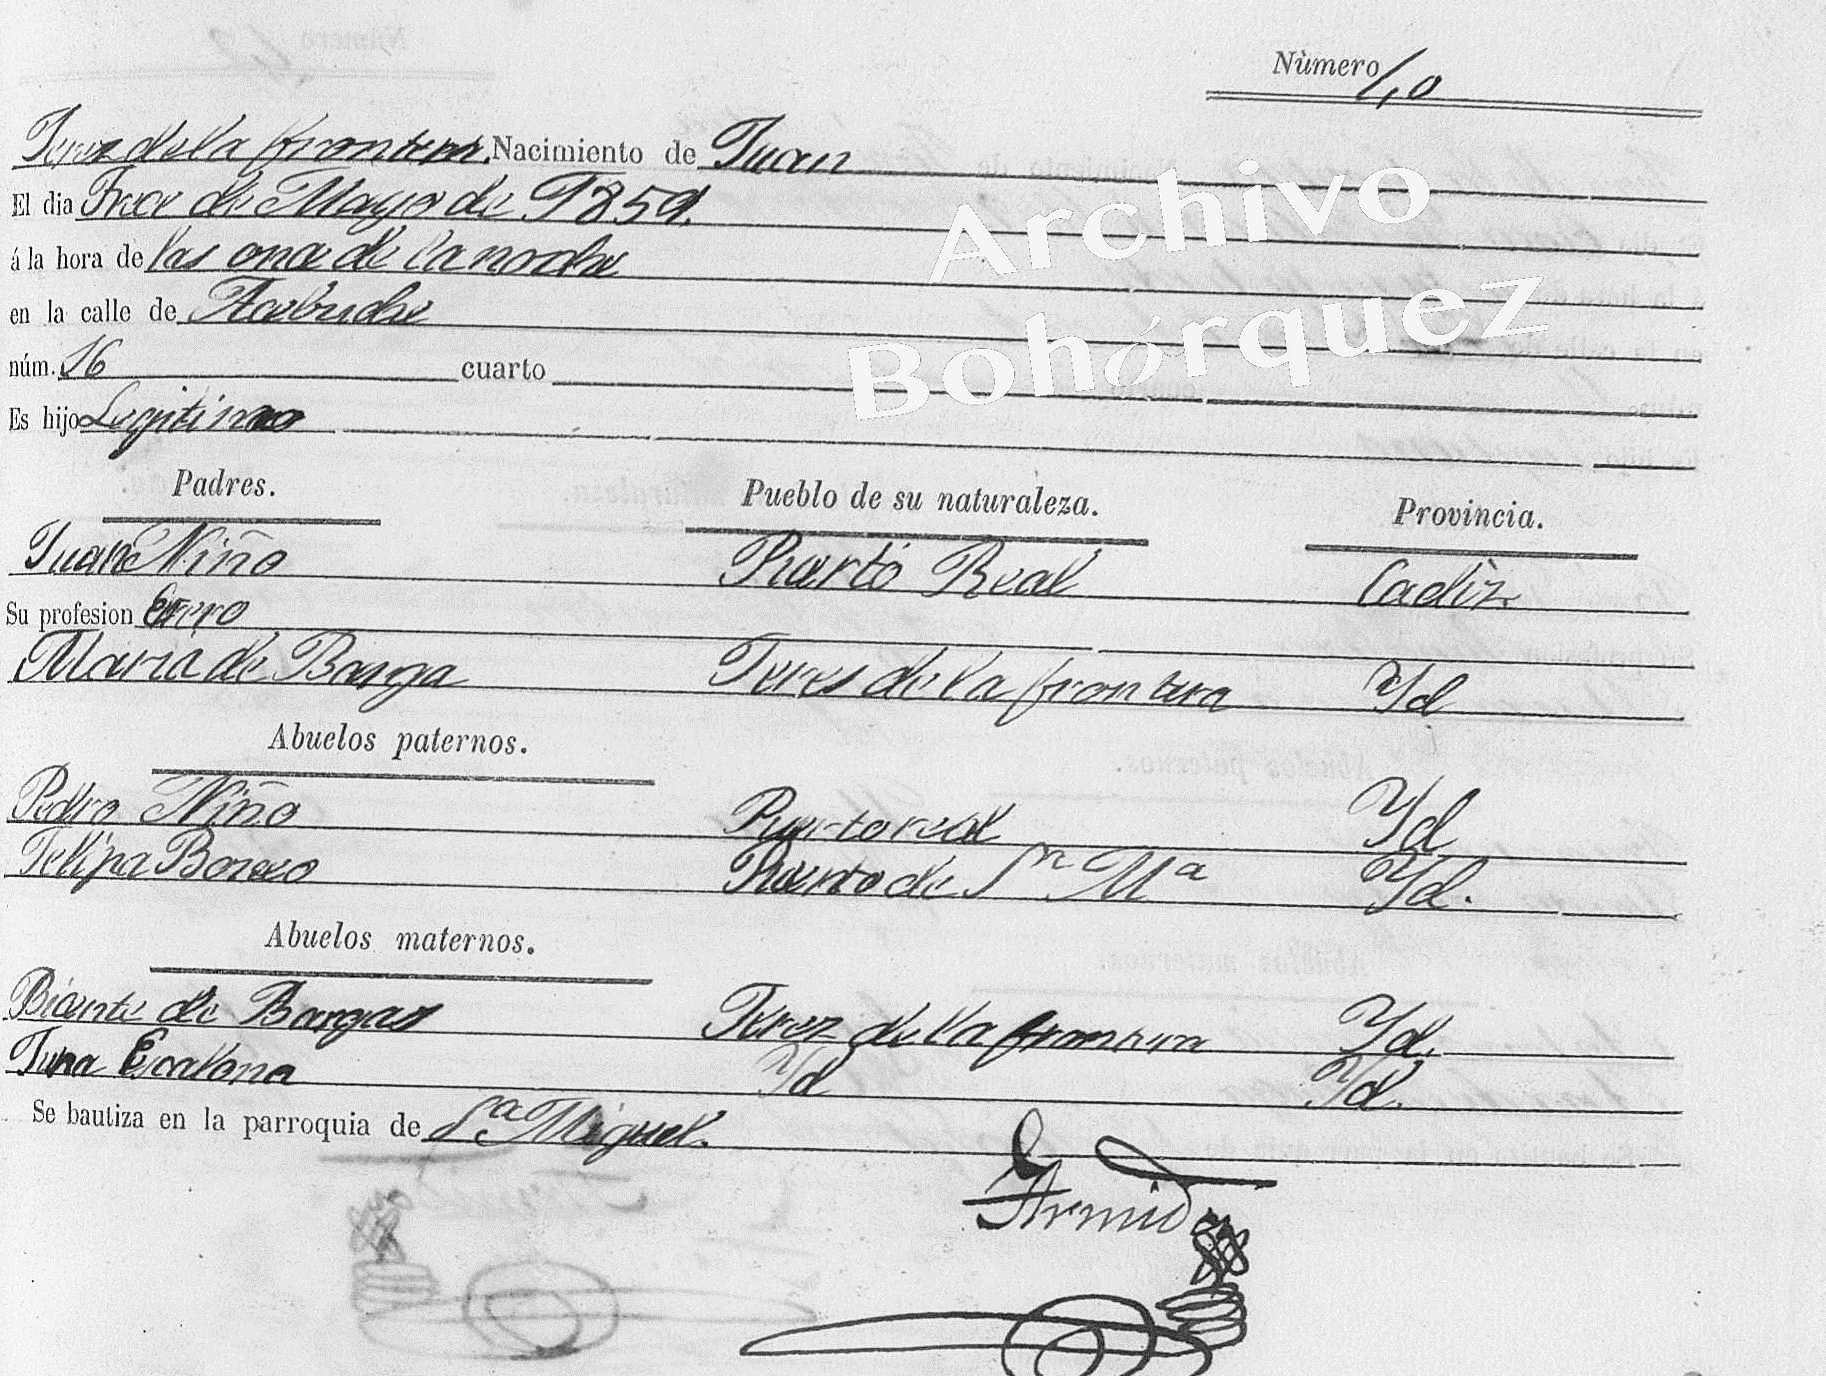 Número 10
Jerez de la frontera. Nacimiento de Juan
El dia Trece de Mayo de 1859.
á la hora de las ona de la noche
en la calle de Acebuche
núm. 16 cuarto
Es hijo Legitimo
Padres. Pueblo de su naturaleza. Provincia.
Juan Niño Puerto Real Cadiz
Su profesion
Maria de Barga Jeres de la frontera Yd
Abuelos paternos.
Pedro Niño Puertoreal Yd
Felipa Puerto de Sn Mª Yd.
Abuelos maternos.
Bicente de Bargas Jerez de la frontera Yd.
Juna Escalona Yd Yd.
Se bautiza en la parroquia de Sn Miguel.
Archivo
Bohórquez